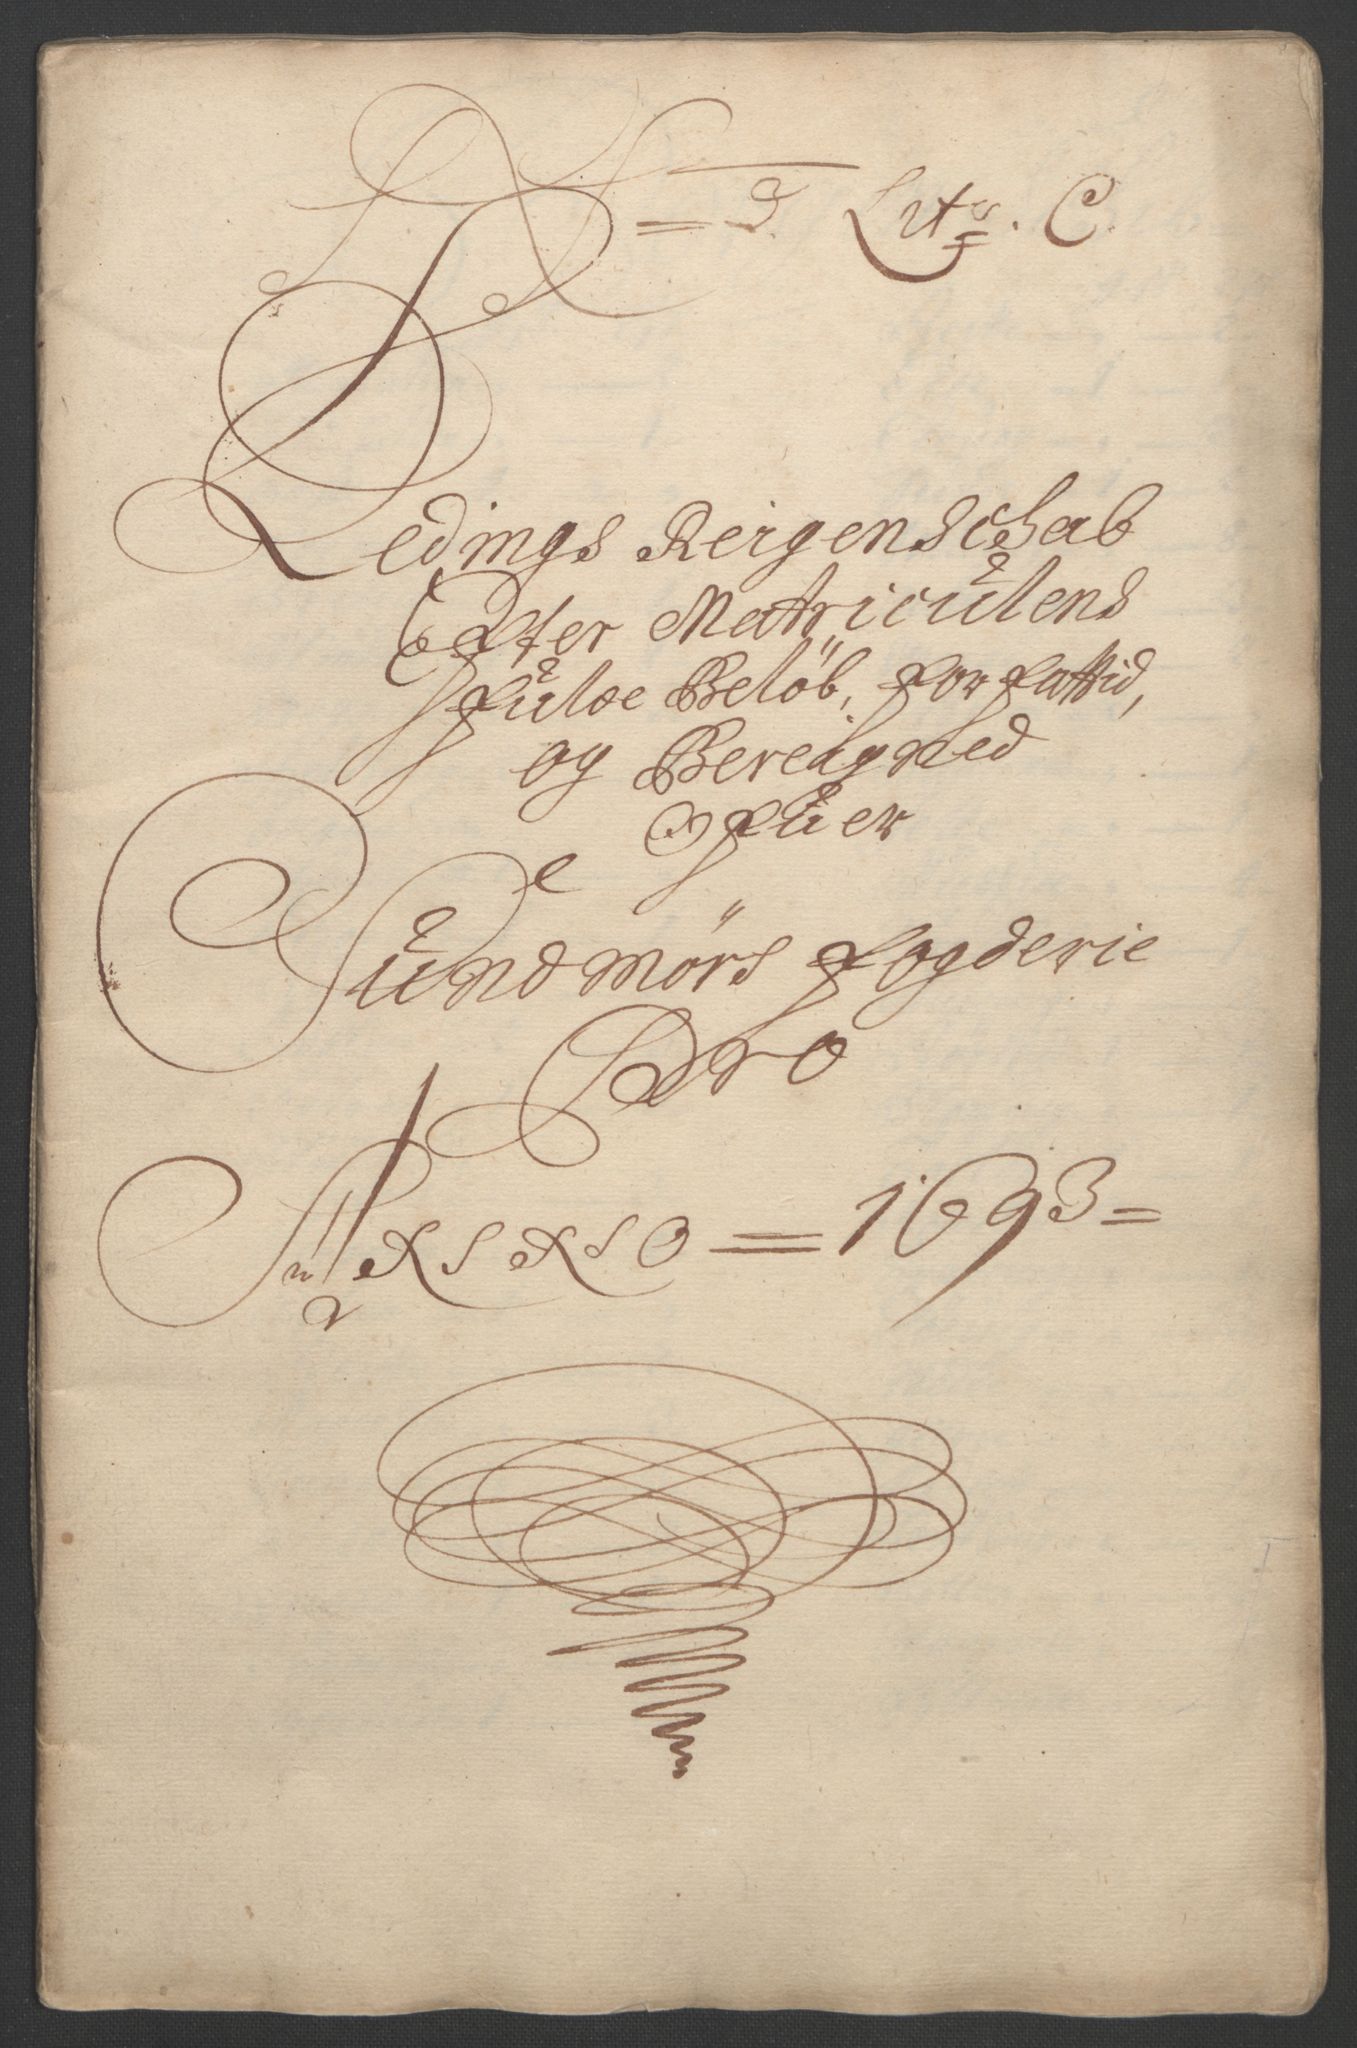 N = 3 Litr. C.
Ledings Reigenschab
Efter Matriculens
fulde Beløb, forfattid,
og Bereigned
Ofuer
Sundmørs fogderie
Pro
Anno = 1693 =